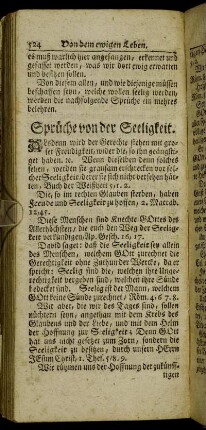 524 Von dem ewigen Leben.
es muß warlich hier angefangen, erkennet und
gefasset werden, was wir dort ewig erwarten
und besitzen sollen.
Von diesem allen, und wie diejenige müssen
beschaffen seyn, welche wollen seelig werden,
werden die nachfolgende Sprüche ein mehres
belehren.
Sprüche von der Seeligkeit.
Alsdenn wird der Gerechte stehen mit gros-
ser Freudigkeit, wider die, so ihn geängsti-
get haben. ꝛc. Wenn dieselben denn solches
sehen, werden sie grausam erschrecken vor sol-
cher Seeligkeit, derer sie sich nicht versehen hät-
ten, Buch der Weißheit 5/1. 2.
Die, so im rechten Glauben sterben, haben
Freude und Seeligkeit zu hoffen, 2. Maccab.
12.45.
Diese Menschen sind Knechte GOttes des
Allerhöchsten, die euch den Weg der Seelig-
keit verkündigen, Ap. Gesch. 16, 17.
David saget: daß die Seeligkeit sey allein
des Menschen, welchem GOtt zurechnet die
Gerechtigkeit ohne Zuthun der Wercke, da er
spricht: Seelig sind die, welchen ihre Unge-
rechtigkeit vergeben sind, welchen ihre Sünde
bedecket sind. Seelig ist der Mann, welchem
GOtt keine Sünde zurechnet, Röm. 4, 6. 7. 8.
Wir aber, die wir des Tages sind, sollen
nüchtern seyn, angethan mit dem Krebs des
Glaubens und der Liebe, und mit dem Helm
der Hoffnung zur Seeligkeit. Denn GOtt
hat uns nicht gesetzet zum Zorn, sondern die
Seeligkeit zu besitzen, durch unsern HErrn
JEsum Christ. 1. Thes. 5, 8. 9.
Wir rühmen uns der Hoffnung der zukünff-
tigen